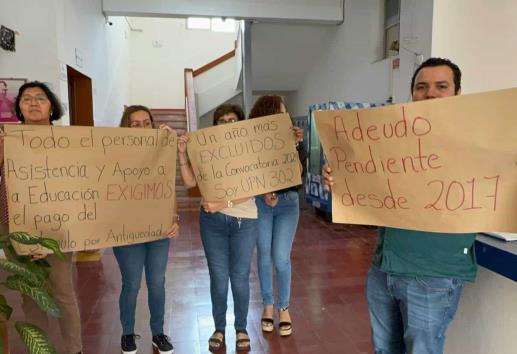 Todo el personal de
Asistencia y Apoyo a
a Educación EXIGIMOS
el pago del
por Antiguedad
Un año más
EXCLUIDOS
de la Convocatoria
Soy UPN 302
Adeudo
Pendiente
desde 2017